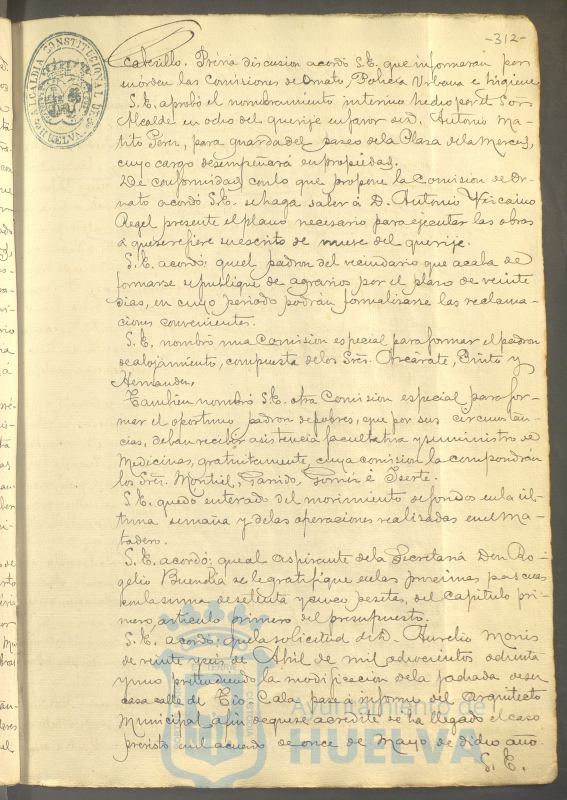 -312-
ALCALDIA CONSTITUCIONAL DE HUELVA
cabrillo. Prévia discusion acordó S.E. que informaran por
su órden las Comisiones de Ornato, Policia Urbana e higiene
S.E. aprobó el nombramiento interino hecho por el Sor
Alcalde en ocho del que rije en favor de D. Antonio Ma-
Perez, para guarda del paseo de la Plaza de la Merced,
cuyo cargo desempeñará en propiedad.
De conformidad con lo que propone la Comision de Or-
nato acordó S.E. se haga saber á D. Antonio Vizcaino
presente el plano necesario para ejecutar las obras
a que se refiere su escrito de nueve del que rije.
S.E. acordó: que el padron del vecindario que acaba de
formarse se publique de agravios por el plazo de veinte
dias, en cuyo periodo podran formalizarse las reclama-
ciones convenientes.
S.E. nombró una Comision especial para formar el padron
de alojamiento, compuesta de los Sres. Azcárate, Pinto y
Hernandez.
Tambien nombró S.E. otra Comision especial para for-
mar el oportuno padron de pobres, que por sus circunstan-
cias, deban recibir asistencia facultativa y suministro de
Medicinas, gratuitamente, cuya comision la compondrán
los Sres. Montiel, Garrido, é
S.E. quedó enterado del movimiento de fondos en la úl-
tima semana y de las operaciones realizadas en el Ma-
tadero.
S.E. acordó: que al aspirante de la Secretaria Don Ro-
gelio Buendia se le gratifique en las proximas pascuas
con la suma de setenta y cinco pesetas, del capitulo pri-
mero, articulo primero del presupuesto.
S.E. acordó: que la solicitud de D. Aurelio
de veinte y seis de Abril de mil ochocientos ochenta
y uno pretendiendo la modificacion de la fachada de su
casa calle de Tio Cala pase á informe del Arquitecto
Municipal a fin de que se acredite se ha llegado el caso
previsto en el acuerdo de once de Mayo de dicho año.
S. E.
Ayuntamiento de
HUELVA